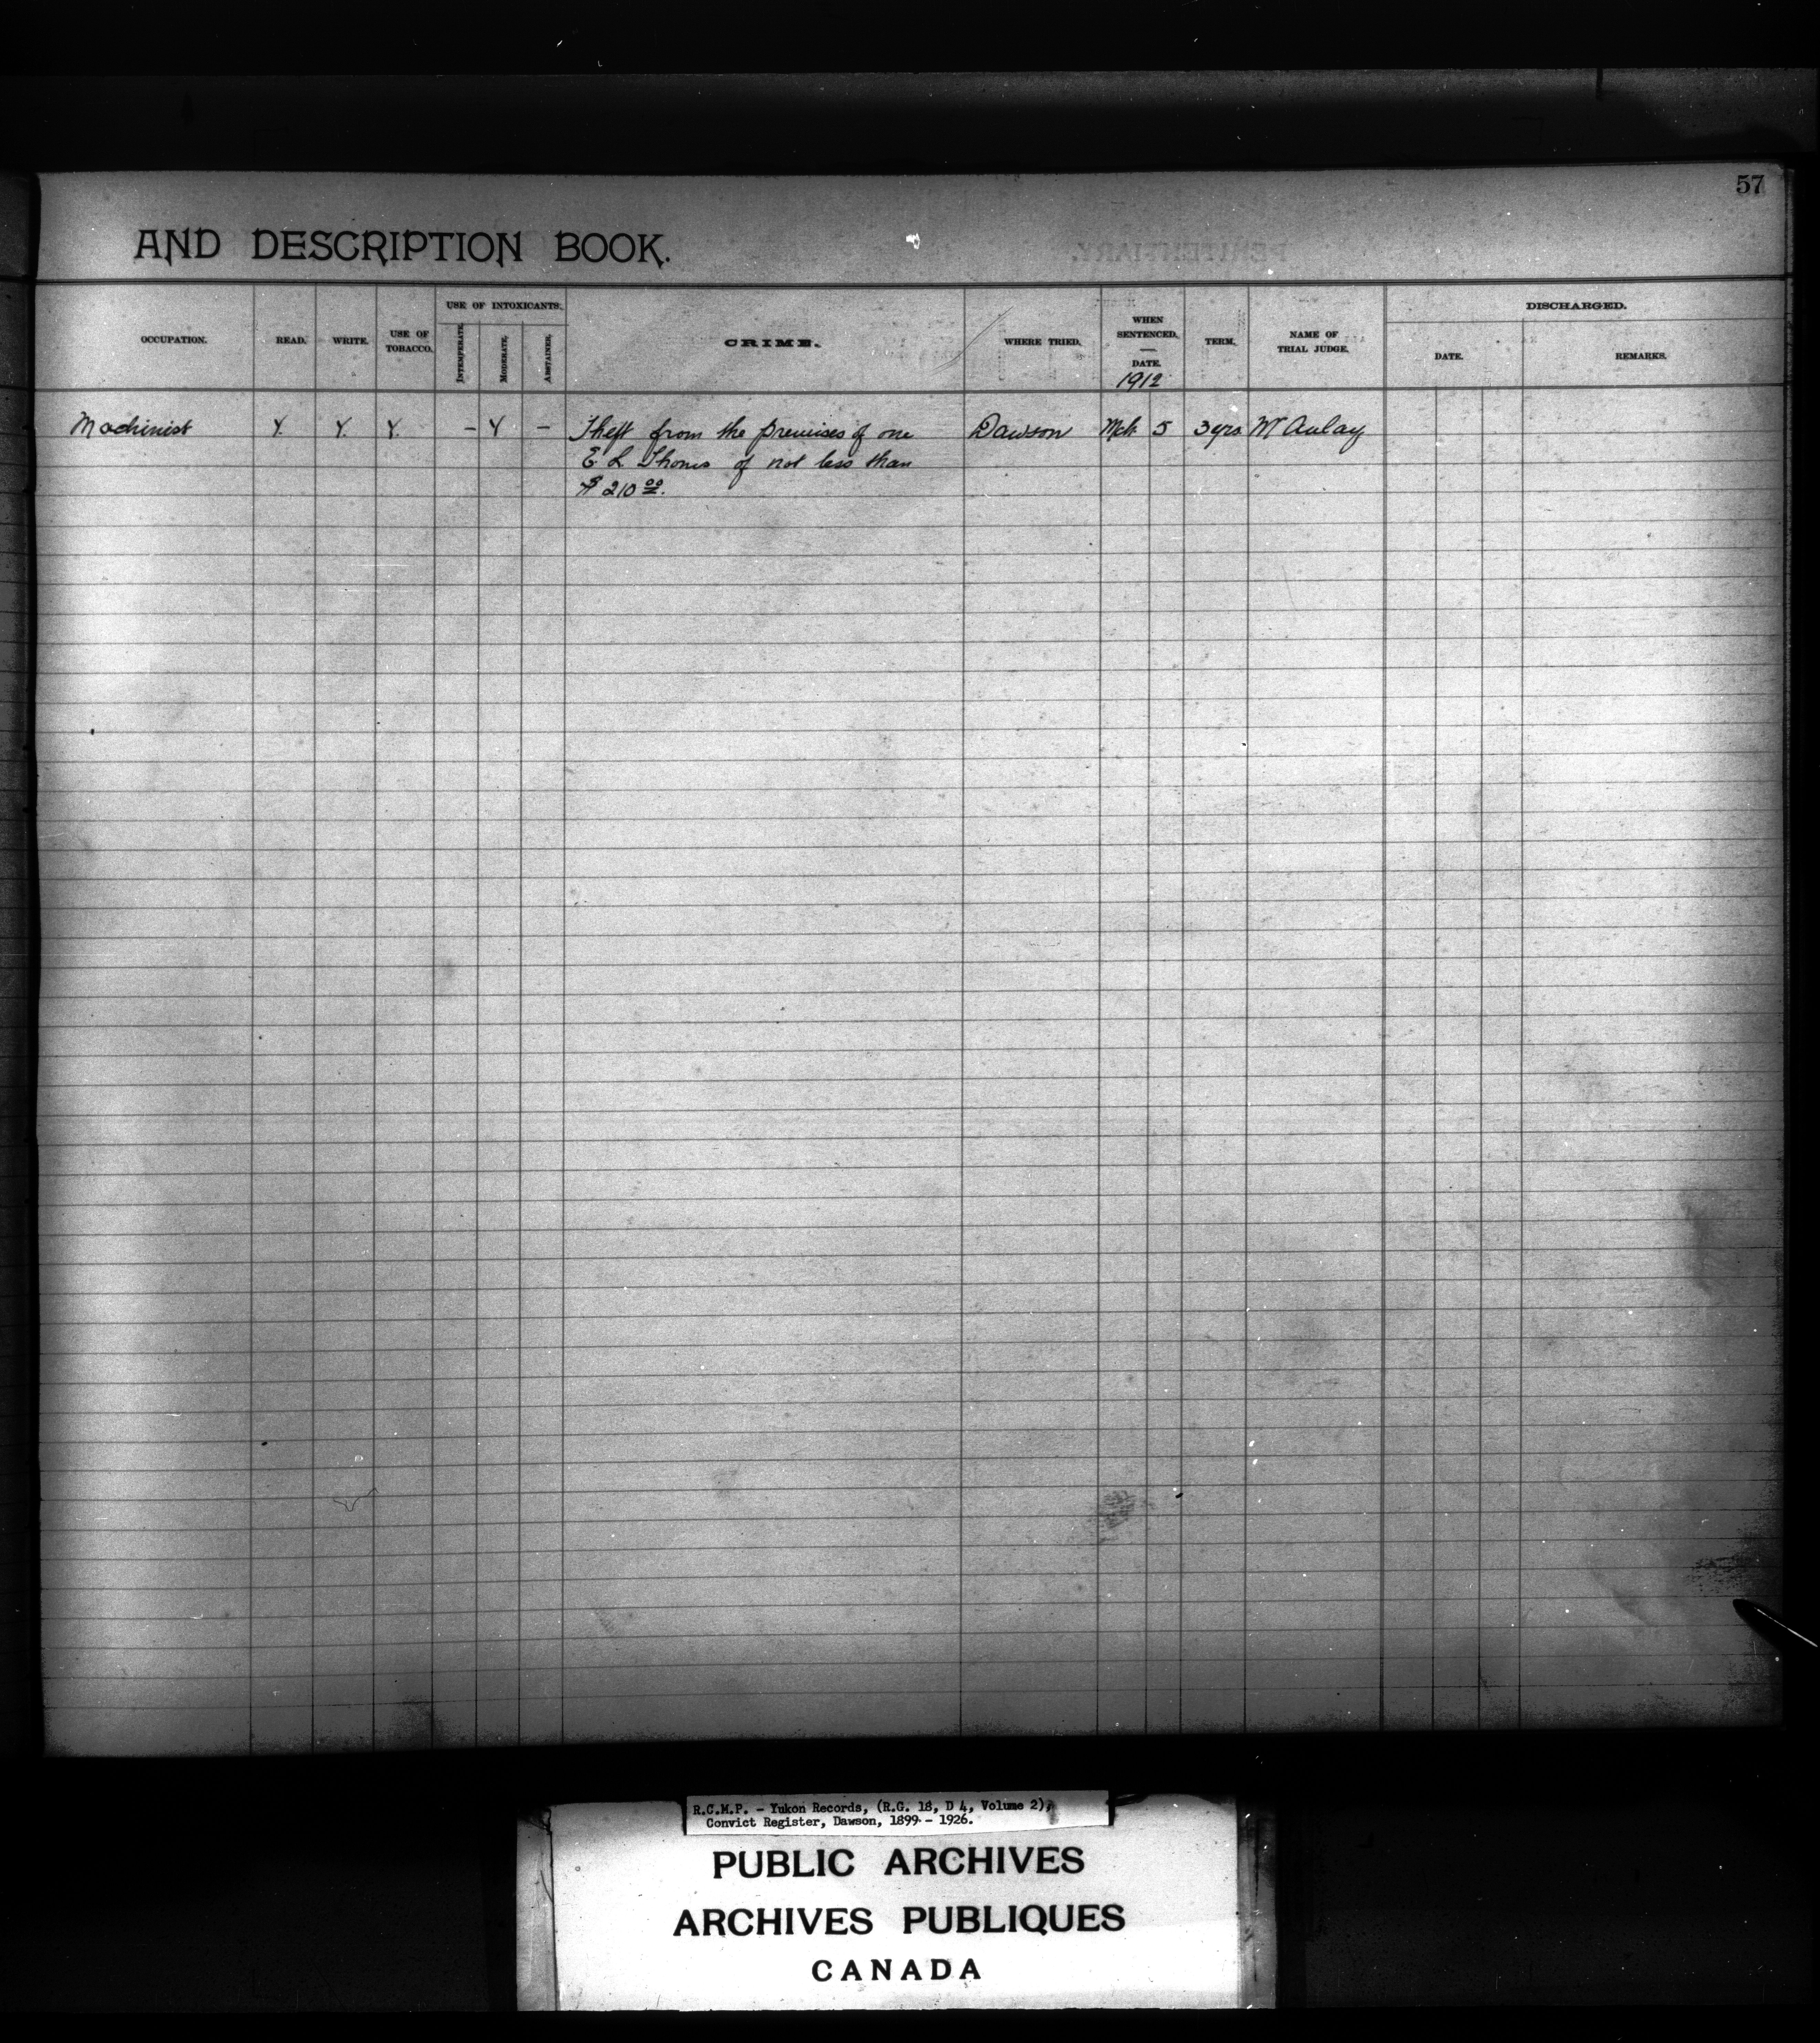 57
AND DESCRIPTION BOOK.
PENITENTIARY.
OCCUPATION. READ. WRITE. USE OF TOBACCO. USE OF INTOXICANTS. INTEMPERATE. MODERATE. ABSTAINER. CRIME. WHERE TRIED. WHEN SENTENCED. — DATE. 1912 TERM. NAME OF TRIAL JUDGE. DISCHARGED. DATE. REMARKS.
Machinist Y. Y. Y. - Y - Theft from the premises of one Dawson Mch 5 3 yrs McAulay
E L of not less than
$ 210 00.
R.C.M.P. - Yukon Records, (R.G. 18, D 4, Volume 2),
Convict Register, Dawson, 1899 - 1926.
PUBLIC ARCHIVES
ARCHIVES PUBLIQUES
CANADA